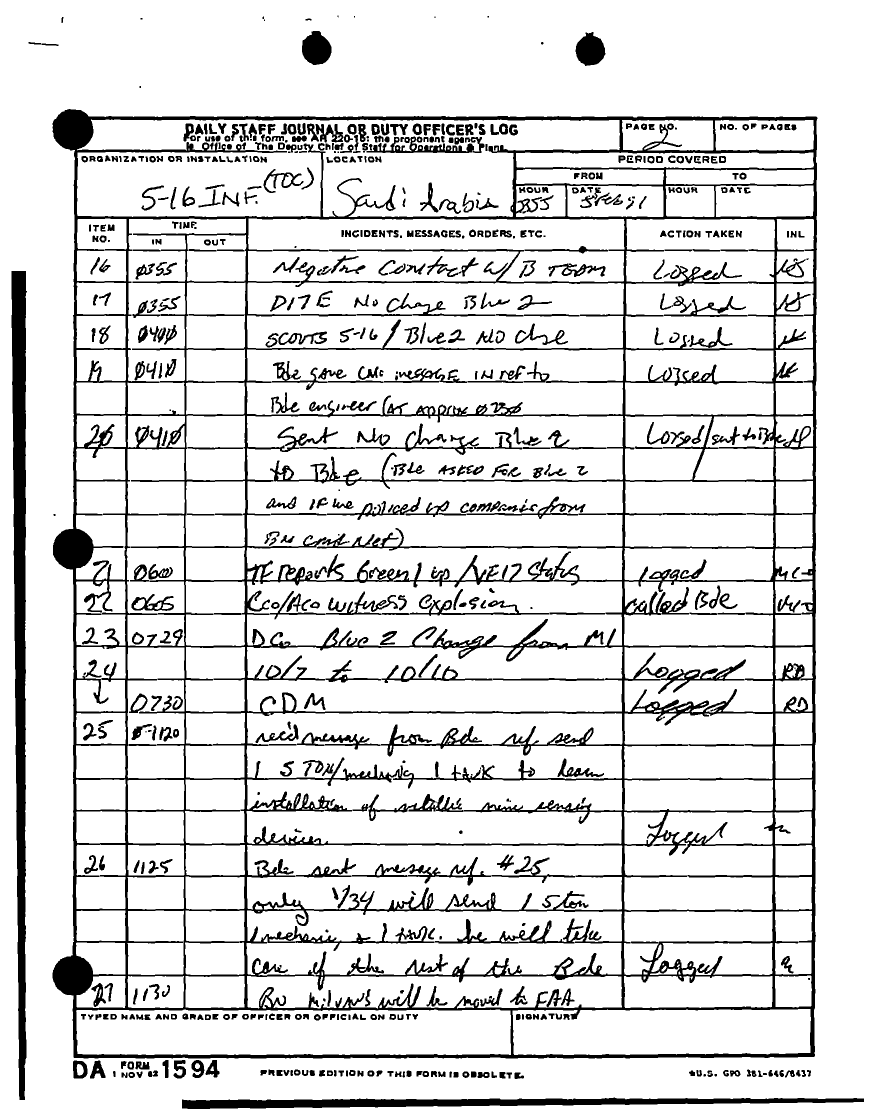 DAILY STAFF JOURNAL OR DUTY OFFICER'S LOG
For use of this form, see AR 220-15; the proponent agency
is Office of The Deputy Chief of Staff for Operations & Plans.
PAGE NO.
2
NO. OF PAGES
ORGANIZATION OR INSTALLATION
5-16 INF. (TOC)
LOCATION
Saudi Arabia
PERIOD COVERED
FROM
TO
HOUR
0355
DATE
5 Feb 91
HOUR
DATE
ITEM NO.
TIME
IN
OUT
INCIDENTS, MESSAGES, ORDERS, ETC.
ACTION TAKEN
INL
16 0355 Negative Contact w/ B TEAM Logged
17 0355 D17E No Change Blue 2 Logged
18 0400 SCOUTS 5-16 / Blue 2 NO Chge Logged
19 0410 Bde gave message IN ref to Logged
Bde engineer (AT Approx
20 0410 Sent No Change Blue 2 Logged/sent to Bde
to Bde (Bde ASKED FOR Blue 2
and IF we policed up companies from
BN cmd Net)
21 0600 TF reports Green 1 up / Status logged
22 0605 Cco/Aco witness explosion. called Bde
23 0729 DCo Blue 2 Change from M1
24 10/7 to 10/10 Logged RD
↓ 0730 CDM Logged RD
25 1120 rec'd message from Bde ref. send
1 5 TON/mechanic, 1 tank to learn
installation of metallic mine sensing
devices. Logged
26 1125 Bde sent message ref. #25,
only 1/34 will send 1 5 ton
1 mechanic, & 1 tank. he will take
care of the rest of the Bde Logged
27 1130 Bn Milvans will be moved to FAA
TYPED NAME AND GRADE OF OFFICER OR OFFICIAL ON DUTY
SIGNATURE
DA FORM 1 NOV 62 1594
PREVIOUS EDITION OF THIS FORM IS OBSOLETE.
☆U.S. GPO 381-646/8437